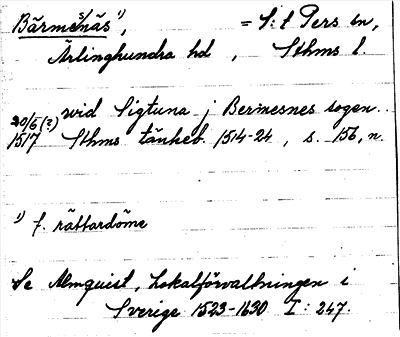 Bärmesnäs ¹⁾, = S:t Pers sn,
Ärlinghundra hd , Sthms l.
20/6 (?) wid Sigtuna j Bermesnes sogen.
1517 Sthms tänkeb. 1514-24 , s. 156, n.
¹⁾ f. rättardöme
Se Almquist, Lokalförvaltningen i
Sverige 1523-1630 I: 247.